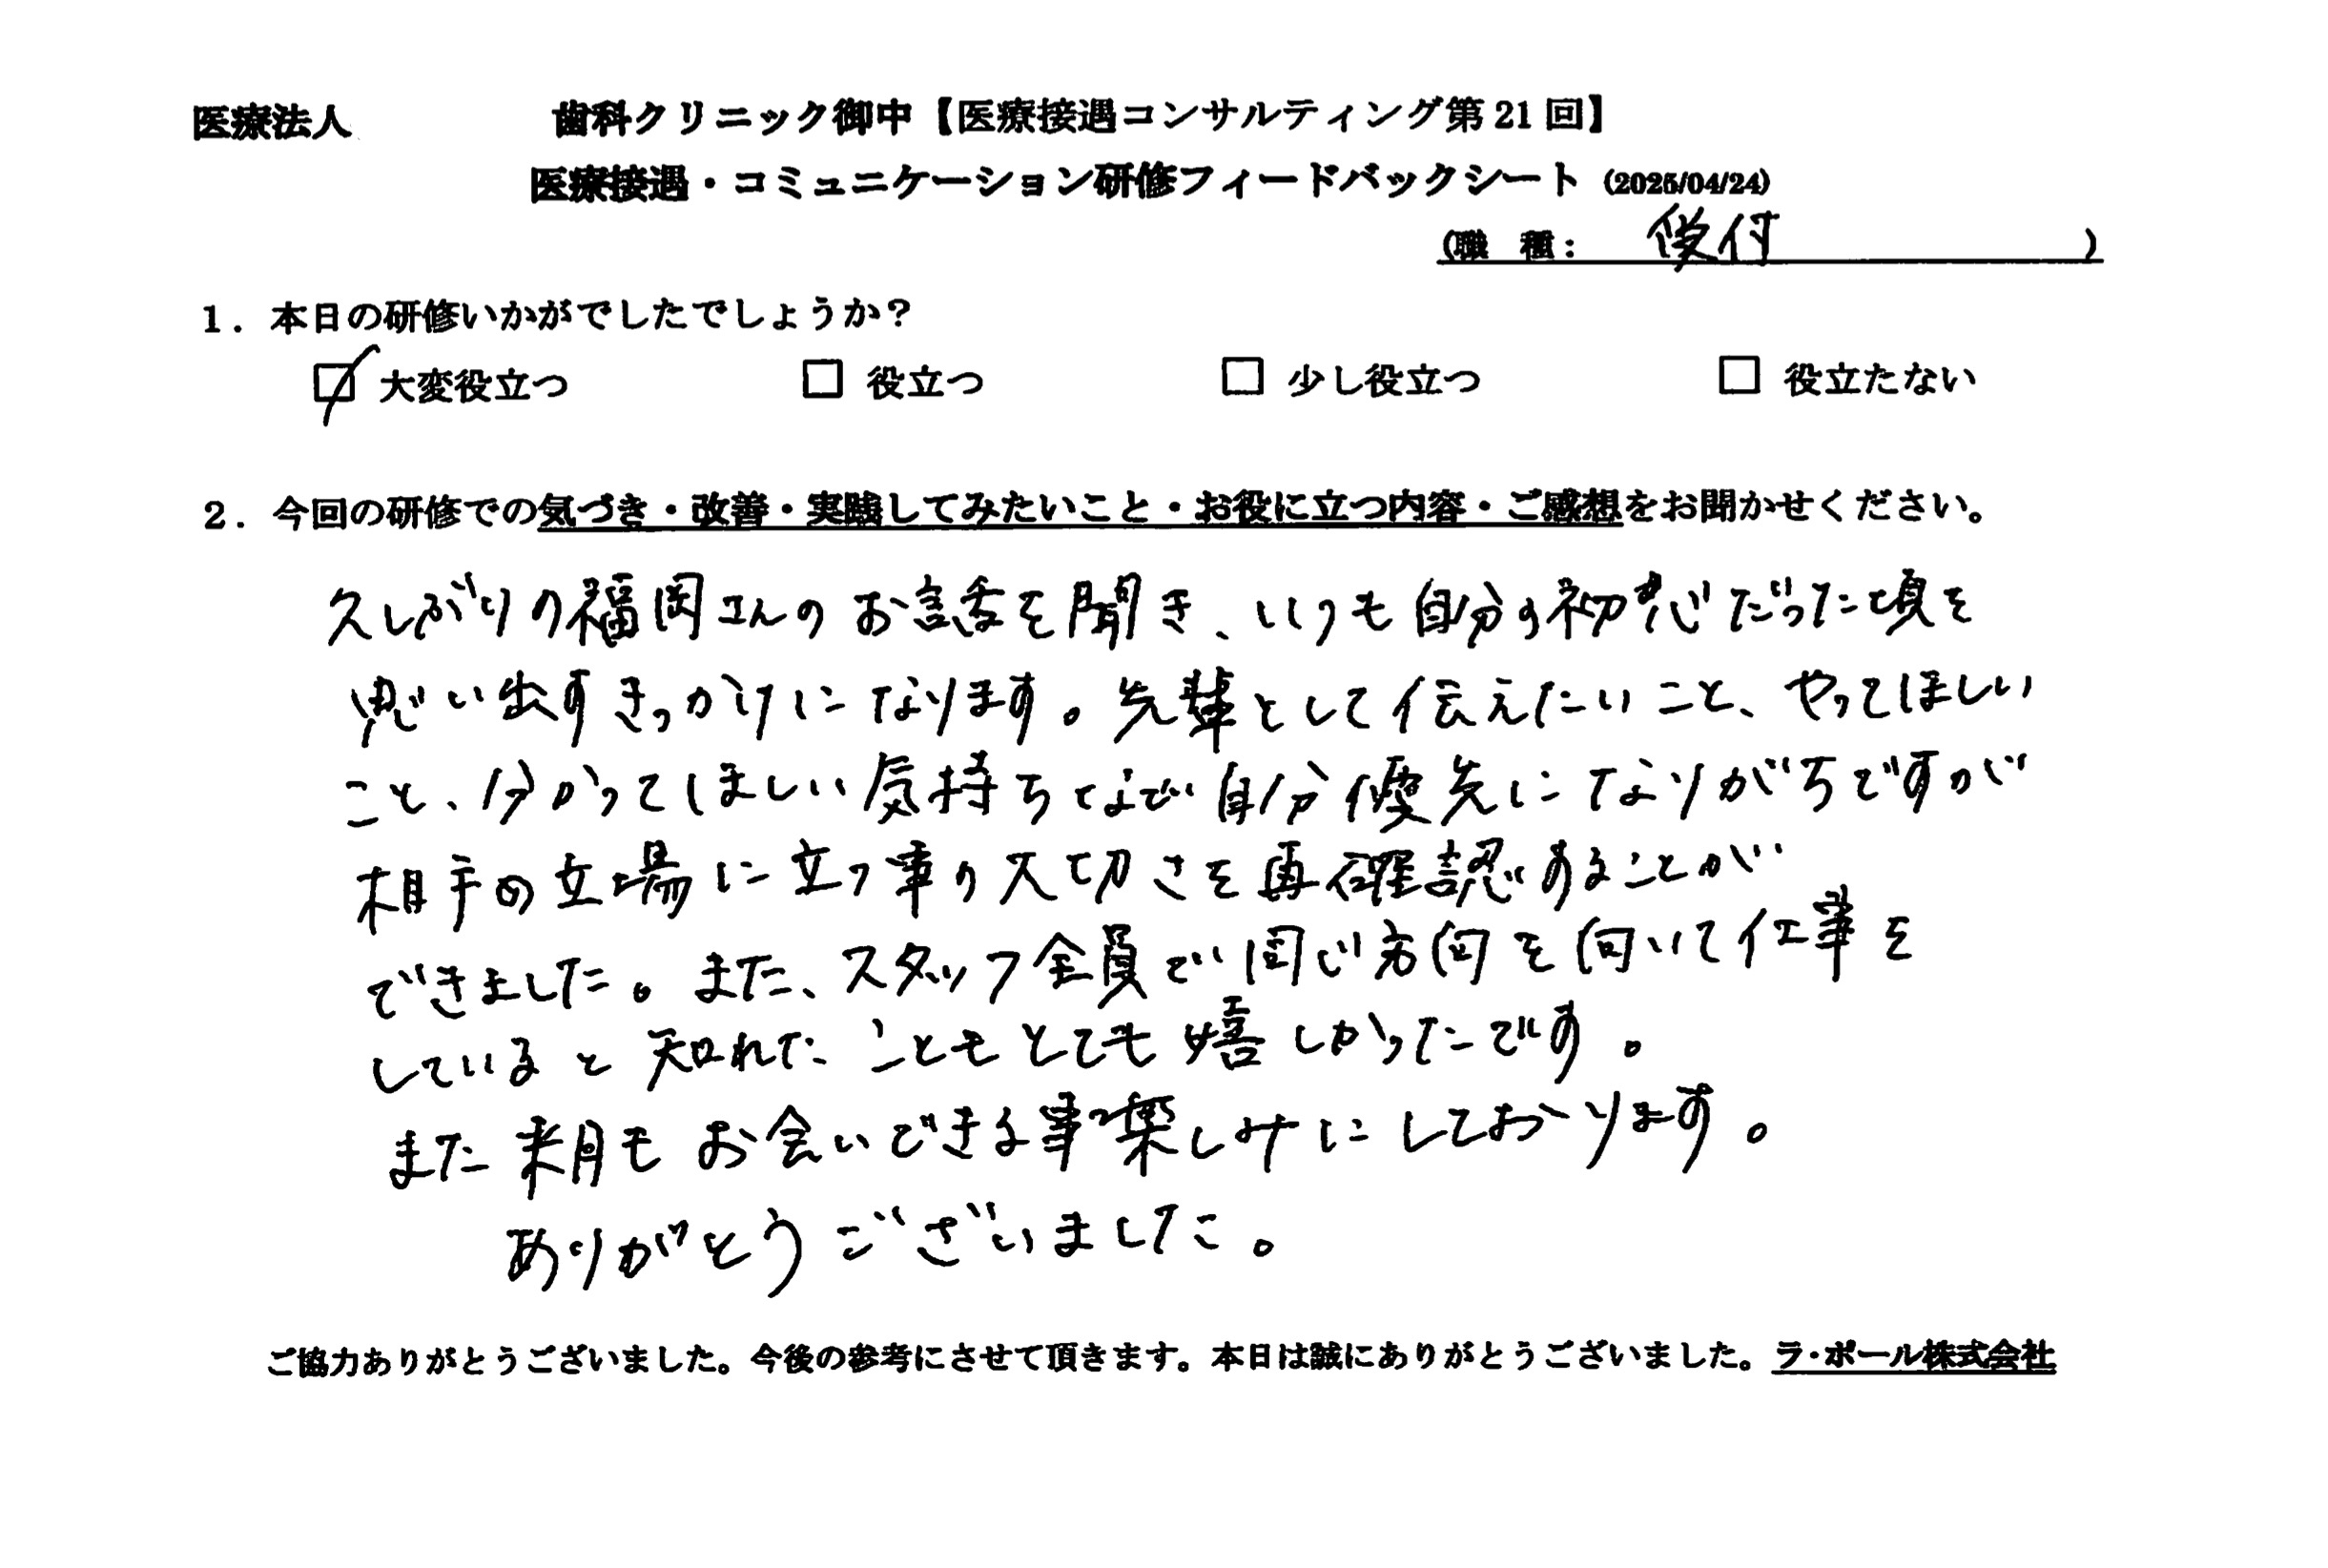 医療法人 歯科クリニック御中【医療接遇コンサルティング第21回】
医療接遇・コミュニケーション研修フィードバックシート (2025/04/24)
(職 種: 受付 )
1. 本日の研修いかがでしたでしょうか?
☑ 大変役立つ □ 役立つ □ 少し役立つ □ 役立たない
2. 今回の研修での気づき・改善・実践してみたいこと・お役に立つ内容・ご感想をお聞かせください。
久しぶりの福岡さんのお話を聞き、いつも自分の初心だった頃を
思い出すきっかけになります。先輩として伝えたいこと、やってほしい
こと、分かってほしい気持ちなど自分優先になりがちですが
相手の立場に立つ事の大切さを再確認することが
できました。また、スタッフ全員で同じ方向を向いて仕事を
していると知れたこともとても嬉しかったです。
また来月もお会いできる事楽しみにしております。
ありがとうございました。
ご協力ありがとうございました。今後の参考にさせて頂きます。本日は誠にありがとうございました。ラ・ポール株式会社